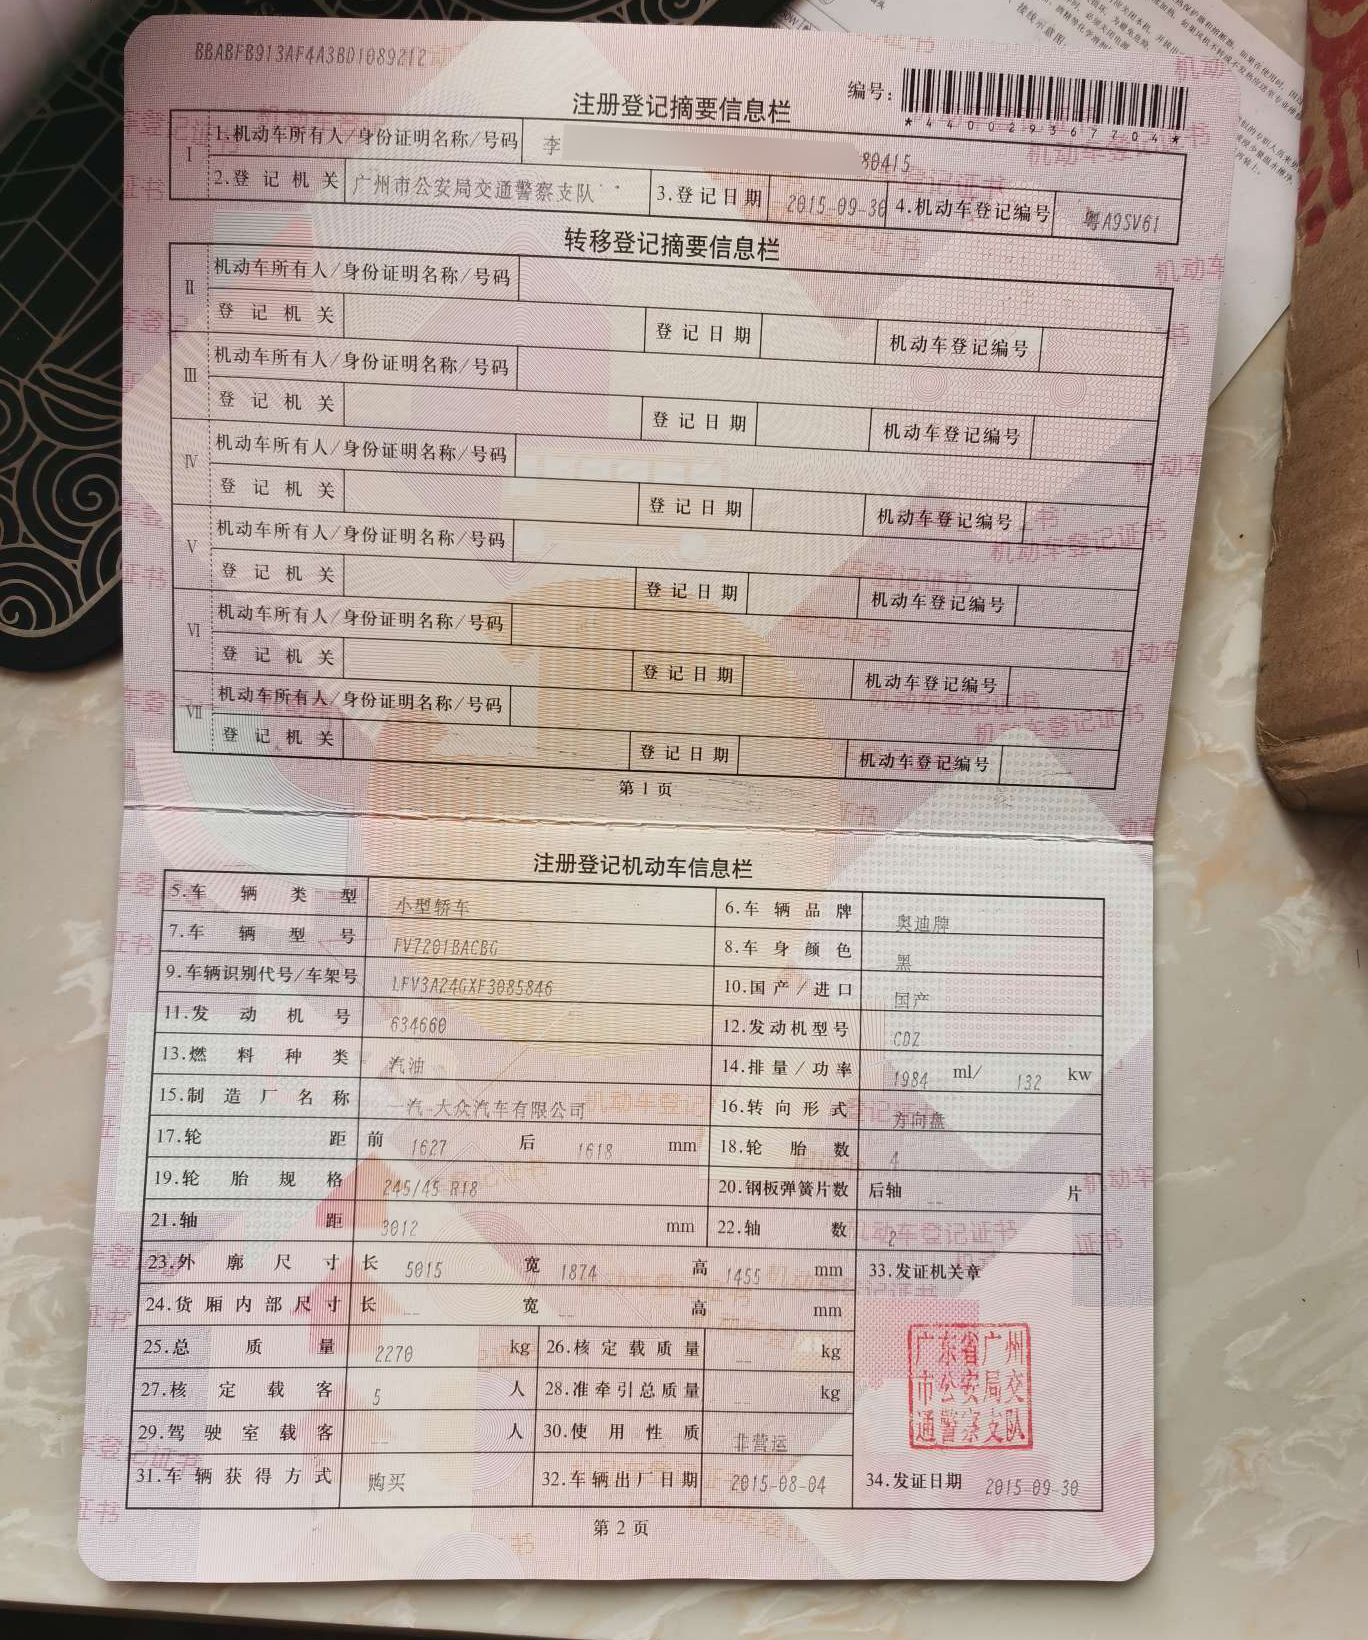 BBABFB913AF4A3B01089212
编号：
*440029367704*
注册登记摘要信息栏
I 1.机动车所有人/身份证明名称/号码 李 80415
2.登记机关 广州市公安局交通警察支队 3.登记日期 2015-09-30 4.机动车登记编号 粤A9SV61
转移登记摘要信息栏
II 机动车所有人/身份证明名称/号码
登记机关 登记日期 机动车登记编号
III 机动车所有人/身份证明名称/号码
登记机关 登记日期 机动车登记编号
IV 机动车所有人/身份证明名称/号码
登记机关 登记日期 机动车登记编号
V 机动车所有人/身份证明名称/号码
登记机关 登记日期 机动车登记编号
VI 机动车所有人/身份证明名称/号码
登记机关 登记日期 机动车登记编号
VII 机动车所有人/身份证明名称/号码
登记机关 登记日期 机动车登记编号
第1页
注册登记机动车信息栏
5.车辆类型 小型轿车 6.车辆品牌 奥迪牌
7.车辆型号 FV7201BACBG 8.车身颜色 黑
9.车辆识别代号/车架号 LFV3A24GXF3085846 10.国产/进口 国产
11.发动机号 634660 12.发动机型号 CDZ
13.燃料种类 汽油 14.排量/功率 1984 ml/ 132 kw
15.制造厂名称 一汽-大众汽车有限公司 16.转向形式 方向盘
17.轮距 前 1627 后 1618 mm 18.轮胎数 4
19.轮胎规格 245/45 R18 20.钢板弹簧片数 后轴 -- 片
21.轴距 3012 mm 22.轴数 2
23.外廓尺寸 长 5015 宽 1874 高 1455 mm 33.发证机关章
24.货厢内部尺寸 长 -- 宽 -- 高 mm
25.总质量 2270 kg 26.核定载质量 -- kg
27.核定载客 5 人 28.准牵引总质量 -- kg
29.驾驶室载客 -- 人 30.使用性质 非营运
31.车辆获得方式 购买 32.车辆出厂日期 2015-08-04 34.发证日期 2015-09-30
广东省广州
市公安局交
通警察支队
第2页